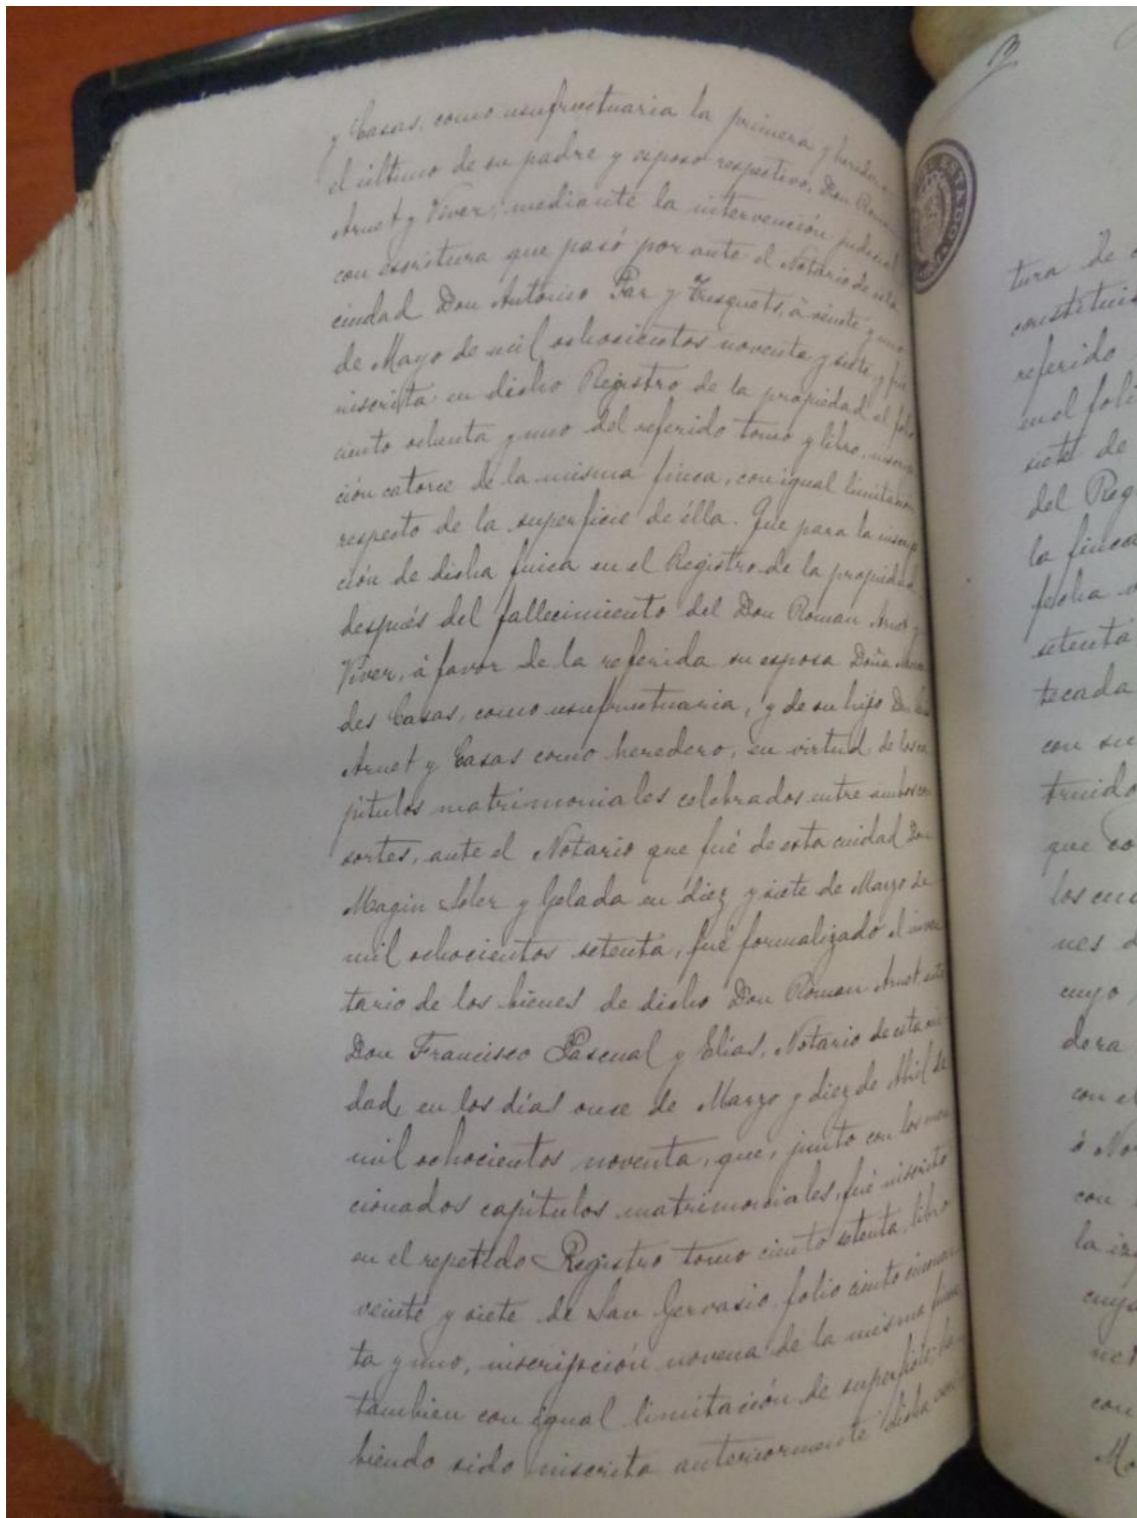 y Casas, como usufructuaria la primera y heredero
el último de su padre y esposo respectivo, Don Roman
Arnet y Viver, mediante la intervención judicial
con escritura que pasó por ante el Notario de esta
ciudad Don Antonio Par y Tusquets, á veinte y uno
de Mayo de mil ochocientos noventa y siete, y fué
inscrita en dicho Registro de la propiedad al folio
ciento ochenta y uno del referido tomo y libro, inscrip
ción catorce de la misma finca, con igual limitación
respecto de la superficie de élla. Que para la inscrip
ción de dicha finca en el Registro de la propiedad
después del fallecimiento del Don Roman Arnet y
Viver, á favor de la referida su esposa Doña
des Casas, como usufructuaria, y de su hijo Don
Arnet y Casas como heredero, en virtud de los ca
pitulos matrimoniales celebrados entre ambos con
sortes, ante el Notario que fué de esta ciudad Don
Magin Soler y Gelada en diez y siete de Mayo de
mil ochocientos setenta, fué formalizado el inven
tario de los bienes de dicho Don Roman Arnet, ante
Don Francisco Pascual y Elías, Notario de esta ciu
dad, en los días once de Marzo y diez de Abril de
mil ochocientos noventa, que, junto con los men
cionados capítulos matrimoniales, fué inscrito
en el repetido Registro tomo ciento setenta, libro
veinte y siete de San Gervasio, folio ciento cincuen
ta y uno, inscripción novena de la misma finca
tambien con igual limitación de superficie, ha
biendo sido inscrita anteriormente dicha
tura de
referido
en el foli
siete de
del Reg
la finca
fecha
setenta
tecada
con su
truido
que co
los
nes d
cuyo
dera
con el
ó No
con
la iz
cuyo
con